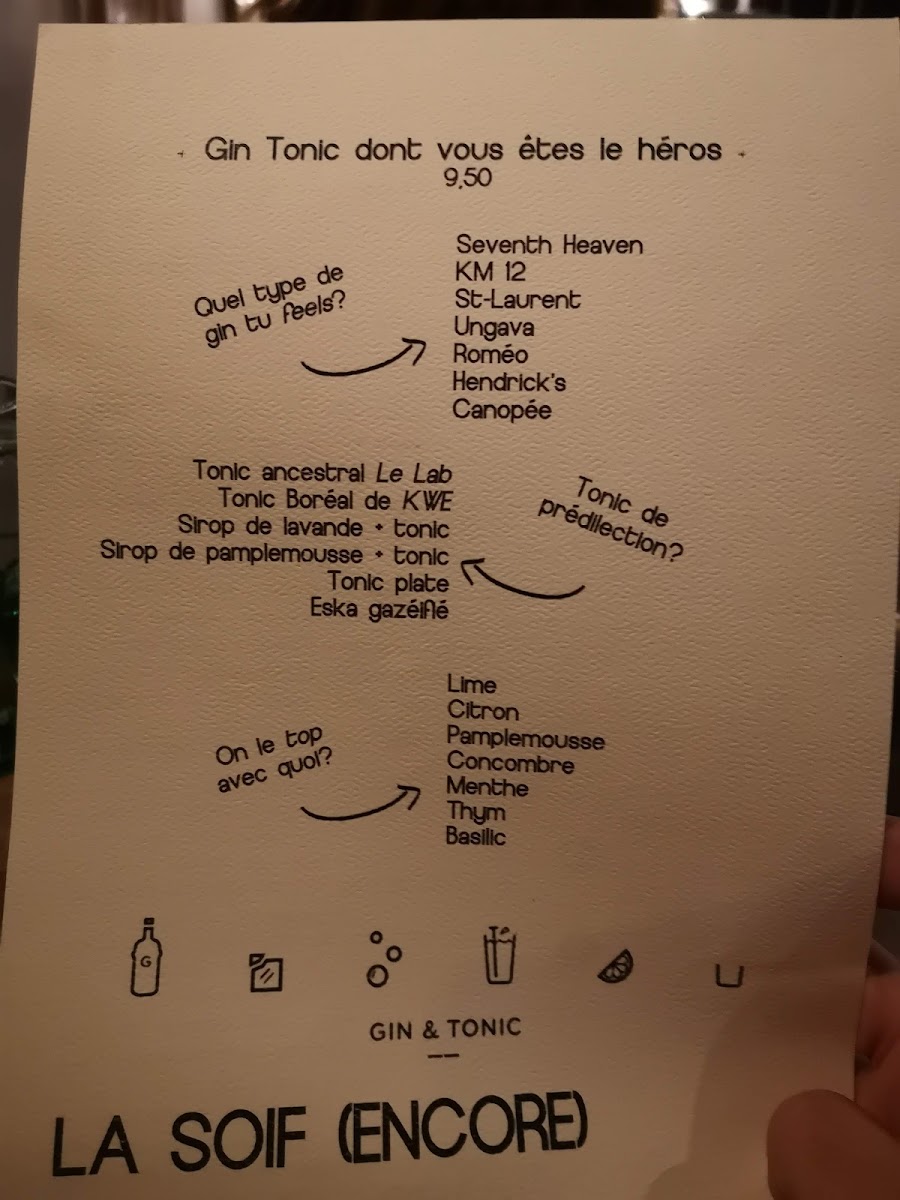 Gin Tonic dont vous êtes le héros
9,50
Quel type de
gin tu feels?
Seventh Heaven
KM 12
St-Laurent
Ungava
Roméo
Hendrick's
Canopée
Tonic de
prédilection?
Tonic ancestral Le Lab
Tonic Boréal de KWE
Sirop de lavande + tonic
Sirop de pamplemousse + tonic
Tonic plate
Eska gazéifié
On le top
avec quoi?
Lime
Citron
Pamplemousse
Concombre
Menthe
Thym
Basilic
G
GIN & TONIC
LA SOIF (ENCORE)